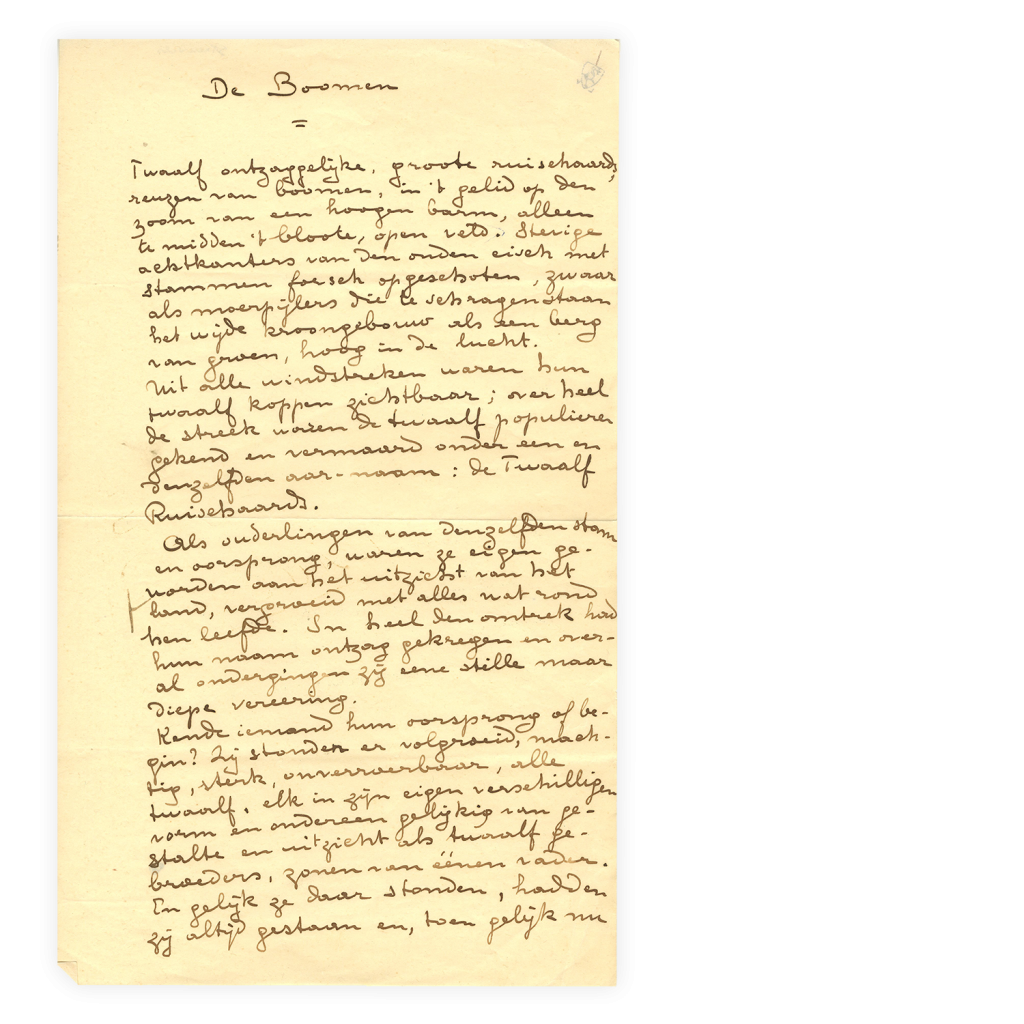 De Boomen
=
Twaalf ontzaggelijke, groote ruischaards,
reuzen van boomen, in 't gelid op den
zoom van een hoogen barm, alleen
te midden 't bloote, open veld. Stevige
achtkanters van den ouden eisch met
stammen forsch opgeschoten, zwaar
als moerpijlers die te schragen staan
het wijde kroongebouw als een berg
van groen, hoog in de lucht.
Uit alle windstreken waren hun
twaalf koppen zichtbaar; over heel
de streek waren de twaalf populieren
gekend en vermaard onder een en
denzelfden aar-naam: de Twaalf
Ruischaards.
Als ouderlingen van denzelfden stam
en oorsprong, waren ze eigen ge-
worden aan het uitzicht van het
land, vergroeid met alles wat rond
hen leefde. In heel den omtrek had
hun naam ontzag gekregen en over-
al ondergingen zij eene stille maar
diepe vereering.
Kende iemand hun oorsprong of be-
gin? Zij stonden er volgroeid, mach-
tig, sterk, onverroerbaar, alle
twaalf, elk in zijn eigen verschilligen
vorm en ondereen gelijkig van ge-
stalte en uitzicht als twaalf ge-
broeders, zonen van éénen vader.
En gelijk ze daar stonden, hadden
zij altijd gestaan en, toen gelijk nu